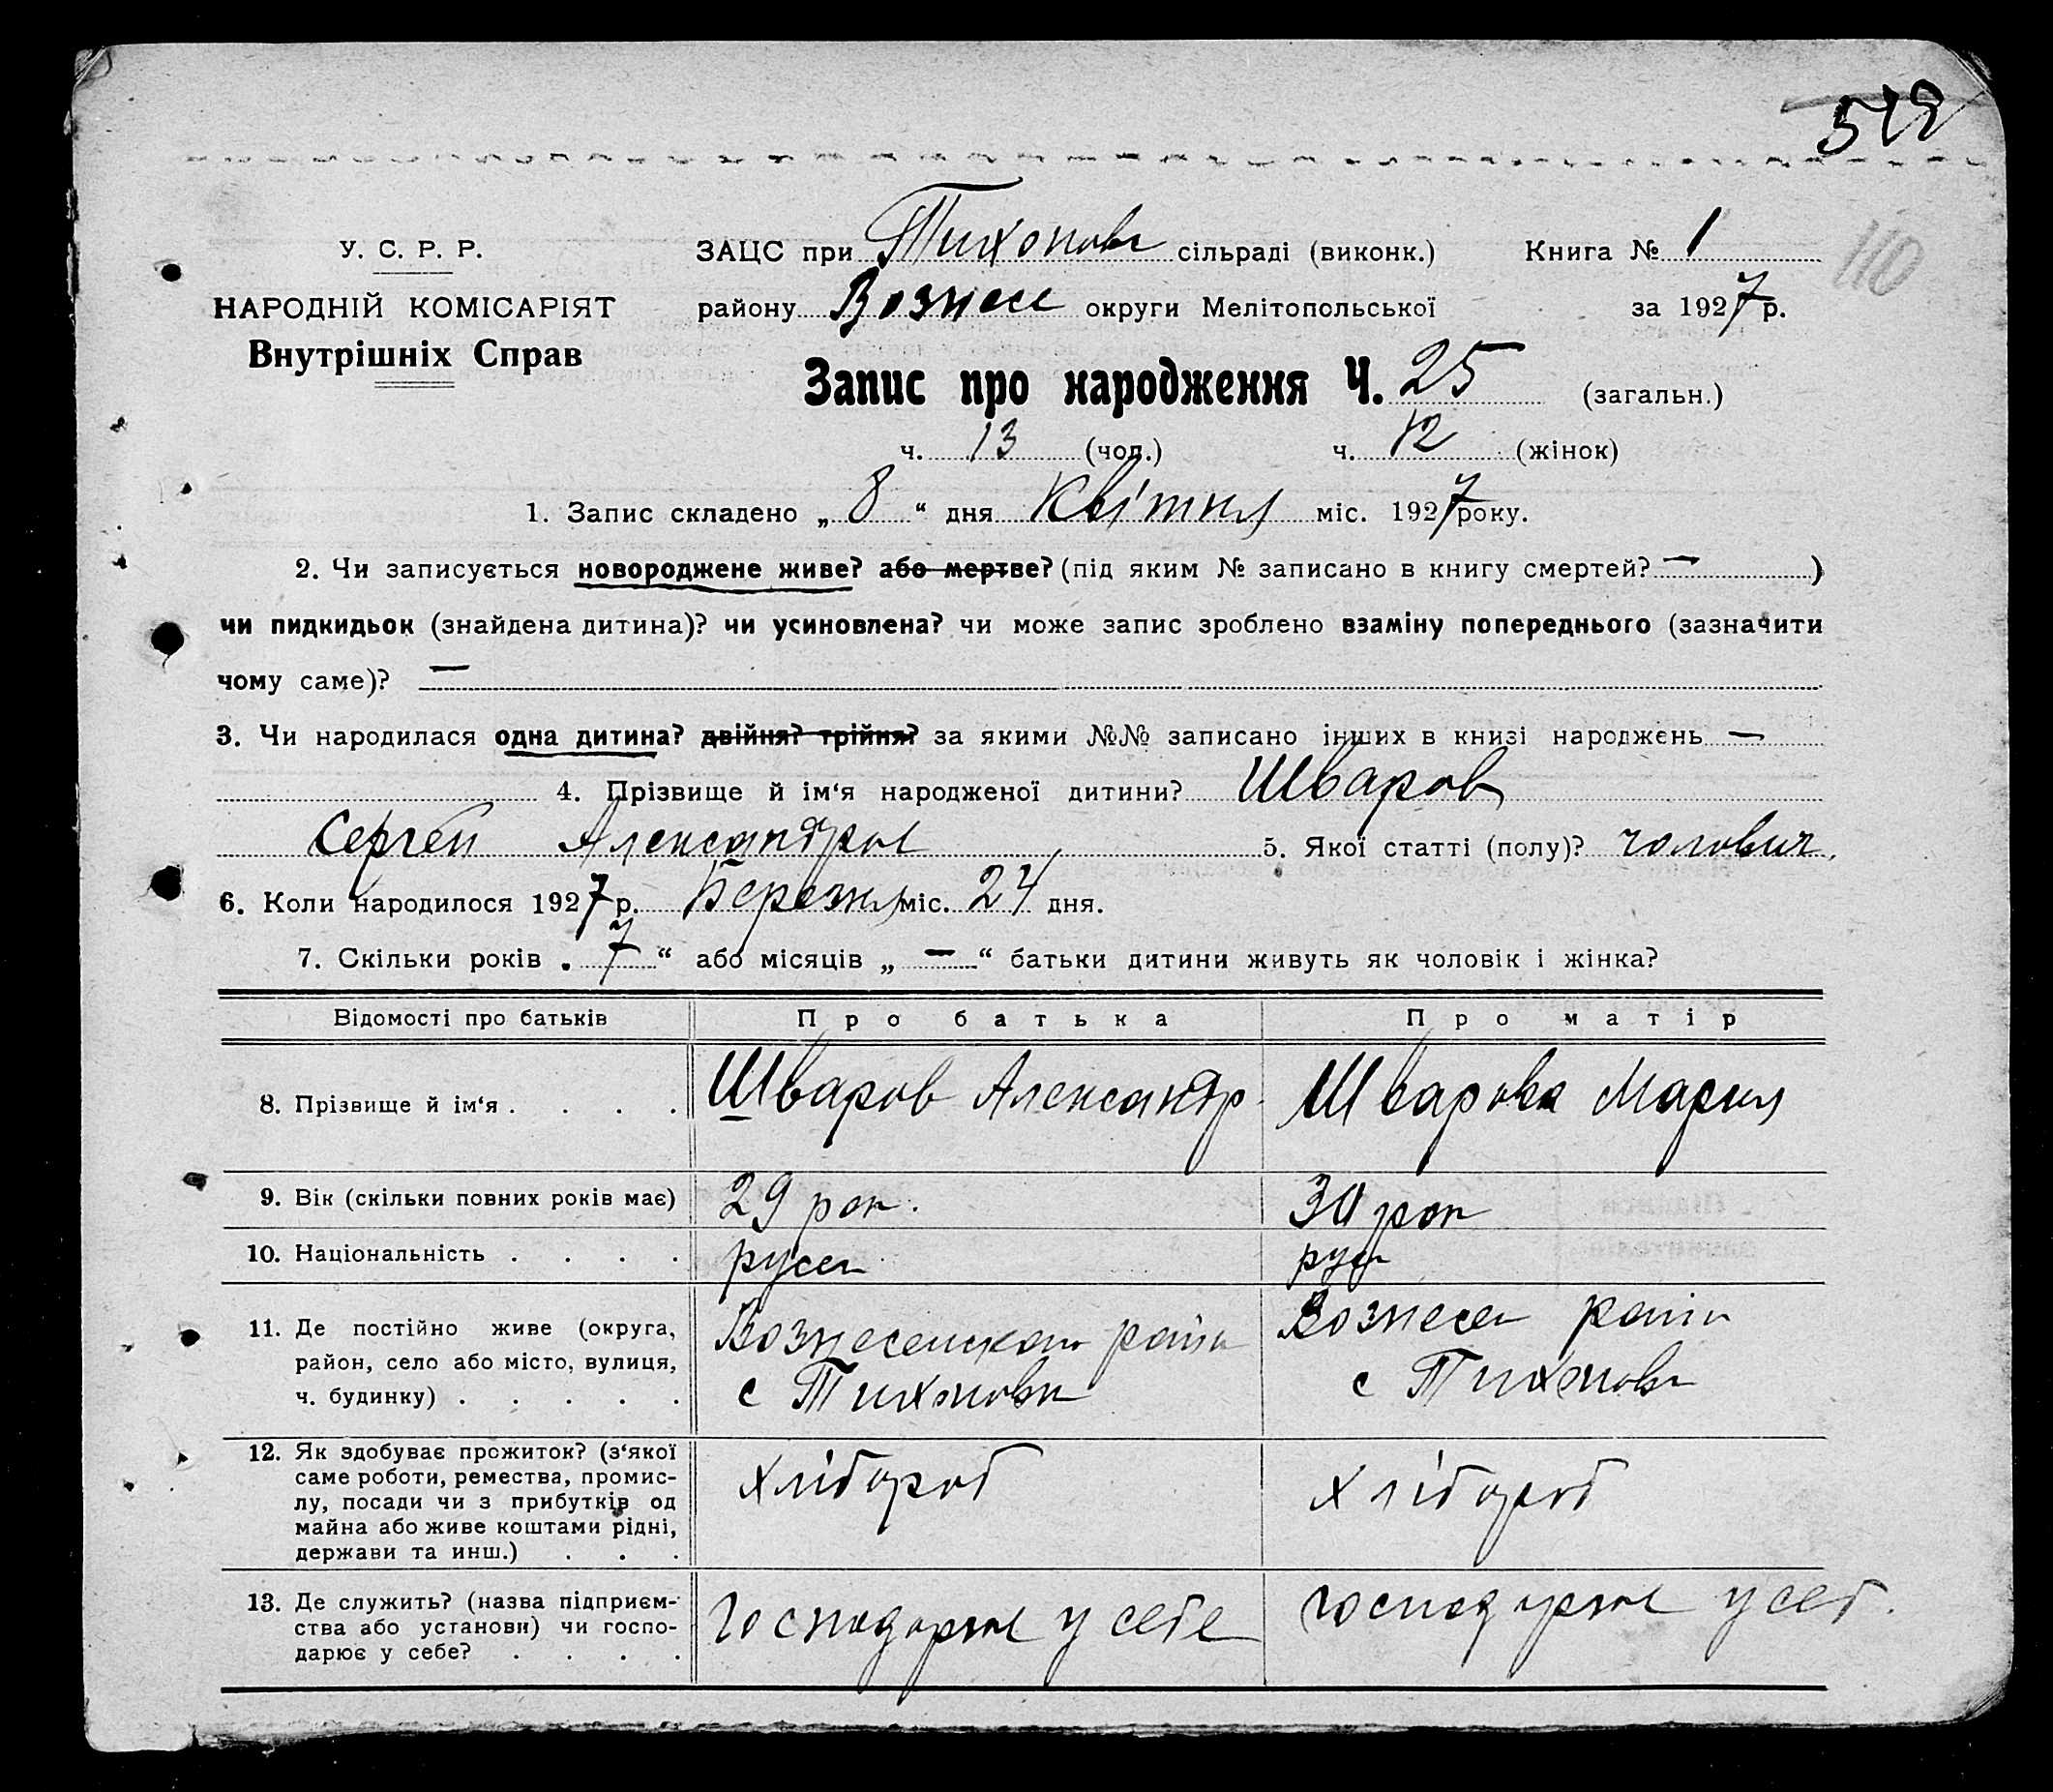 110
У. С. Р. Р.
НАРОДНІЙ КОМІСАРІЯТ
Внутрішніх Справ
ЗАЦС при Тихоновк сільраді (виконк.) Книга № 1
району Вознесе округи Мелітопольської за 1927 р.
Запис про народження Ч. 25 (загальн.)
ч. 13 (чол.) ч. 12 (жінок)
1. Запис складено „ 8 “ дня Квітня міс. 1927 року.
2. Чи записується новороджене живе? або мертве? (під яким № записано в книгу смертей? — )
чи пидкидьок (знайдена дитина)? чи усиновлена? чи може запис зроблено взаміну попереднього (зазначити
чому саме)? —
3. Чи народилася одна дитина? двійня? трійня? за якими №№ записано інших в книзі народжень —
4. Прізвище й ім‘я народженої дитини? Шваров
Сергей Александров 5. Якої статті (полу)? чоловіч.
6. Коли народилося 1927 р. Березня міс. 24 дня.
7. Скільки років „ 7 “ або місяців „ — “ батьки дитини живуть як чоловік і жінка?
Відомості про батьків Про батька Про матір
8. Прізвище й ім‘я . . . . Шваров Александр Шварова Мария
9. Вік (скільки повних років має) 29 рок. 30 рок
10. Національність . . . . русск руск
11. Де постійно живе (округа,
район, село або місто, вулиця,
ч. будинку) . . . . .
Вознесенского район
с Тихоновк
Вознесен район
с Тихоновк
12. Як здобуває прожиток? (з‘якої
саме роботи, ремества, промис-
лу, посади чи з прибутків од
майна або живе коштами рідні,
держави та инш.) . . .
хлібороб
хлібороб
13. Де служить? (назва підприєм-
ства або установи) чи госпо-
дарює у себе? . . . .
господарює у себе
господарює у себ.